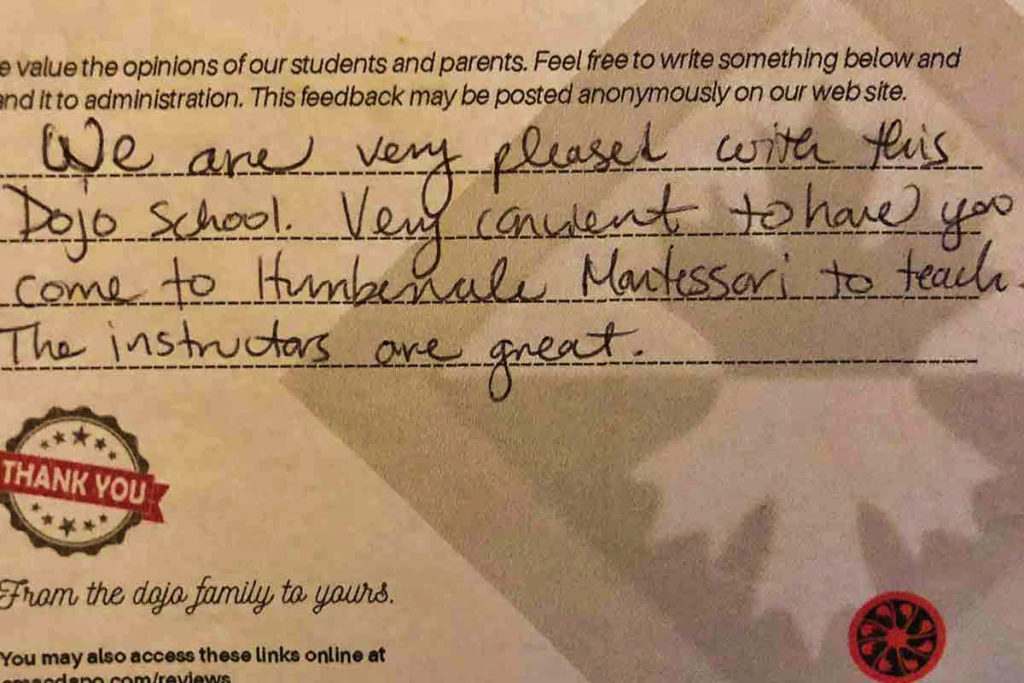 e value the opinions of our students and parents. Feel free to write something below and
and it to administration. This feedback may be posted anonymously on our website.
We are very pleased with this
Dojo School. Very convient to have you
come to Humbervale Montessori to teach.
The instructors are great.
THANK YOU
From the dojo family to yours.
You may also access these links online at